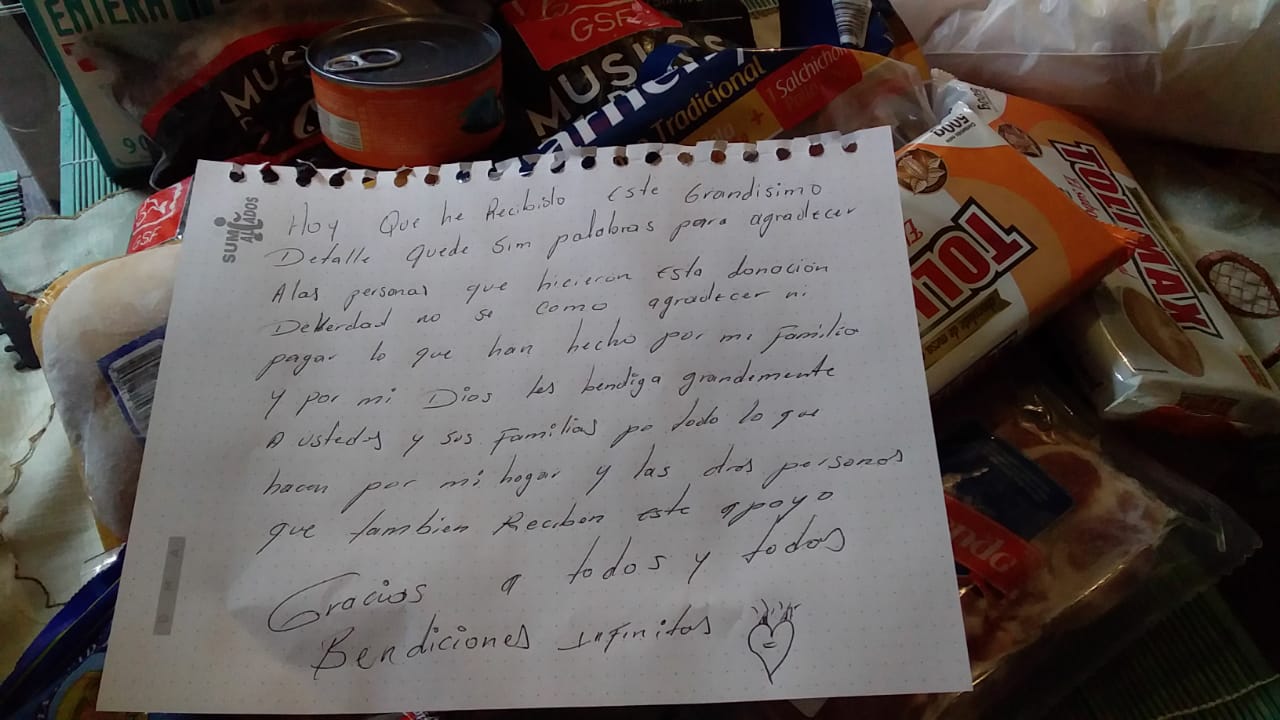 ENTERA
90
MUS
GSF
MUSLOS
Carnefy
Tradicional
1 Salchichón
500g
TOLIMAX
TOLI
GSF
SUMI
ALIADOS
Hoy Que he Recibido este Grandisimo
Detalle quede Sim palabras para agradecer
A las personas que hicieron esta donación
DeVerdad no se como agradecer ni
pagar lo que han hecho por mi Familia
y por mi Dios les bendiga grandemente
A ustedes y sus Familias po todo lo que
hacen por mi hogar y las otras personas
que tambien Reciben este apoyo
Gracias a todos y todas
Bendiciones Infinitas
DÍA